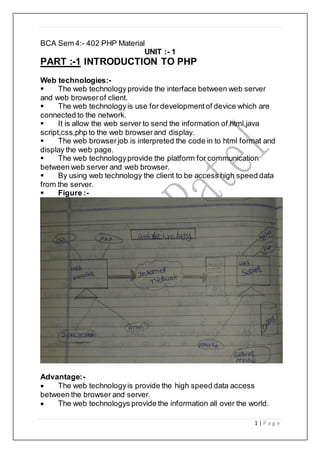 BCA Sem 4:- 402 PHP Material
UNIT :- 1
PART :-1 INTRODUCTION TO PHP
Web technologies:-
▪ The web technology provide the interface between web server
and web browser of client.
▪ The web technology is use for development of device which are
connected to the network.
▪ It is allow the web server to send the information of,html,java
script,css,php to the web browser and display.
▪ The web browser job is interpreted the code in to html format and
display the web page.
▪ The web technology provide the platform for communication
between web server and web browser.
▪ By using web technology the client to be access high speed data
from the server.
▪ Figure :-
PHP
web technology
web
browser
Internet
network
web
Server
Html
Server
side
Patel
Advantage:-
• The web technology is provide the high speed data access
between the browser and server.
• The web technologys provide the information all over the world.
1 | P a g e